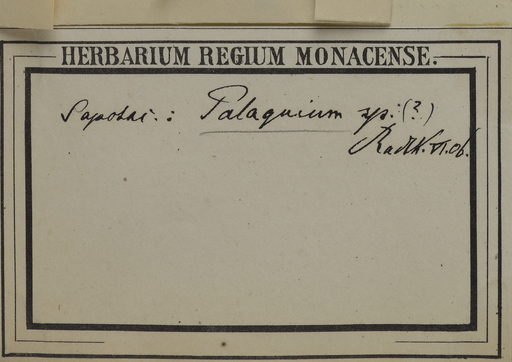 HERBARIUM REGIUM MONACENSE.
Sapotac.: Palaquium sp. (?)
Radlk. VI.06.